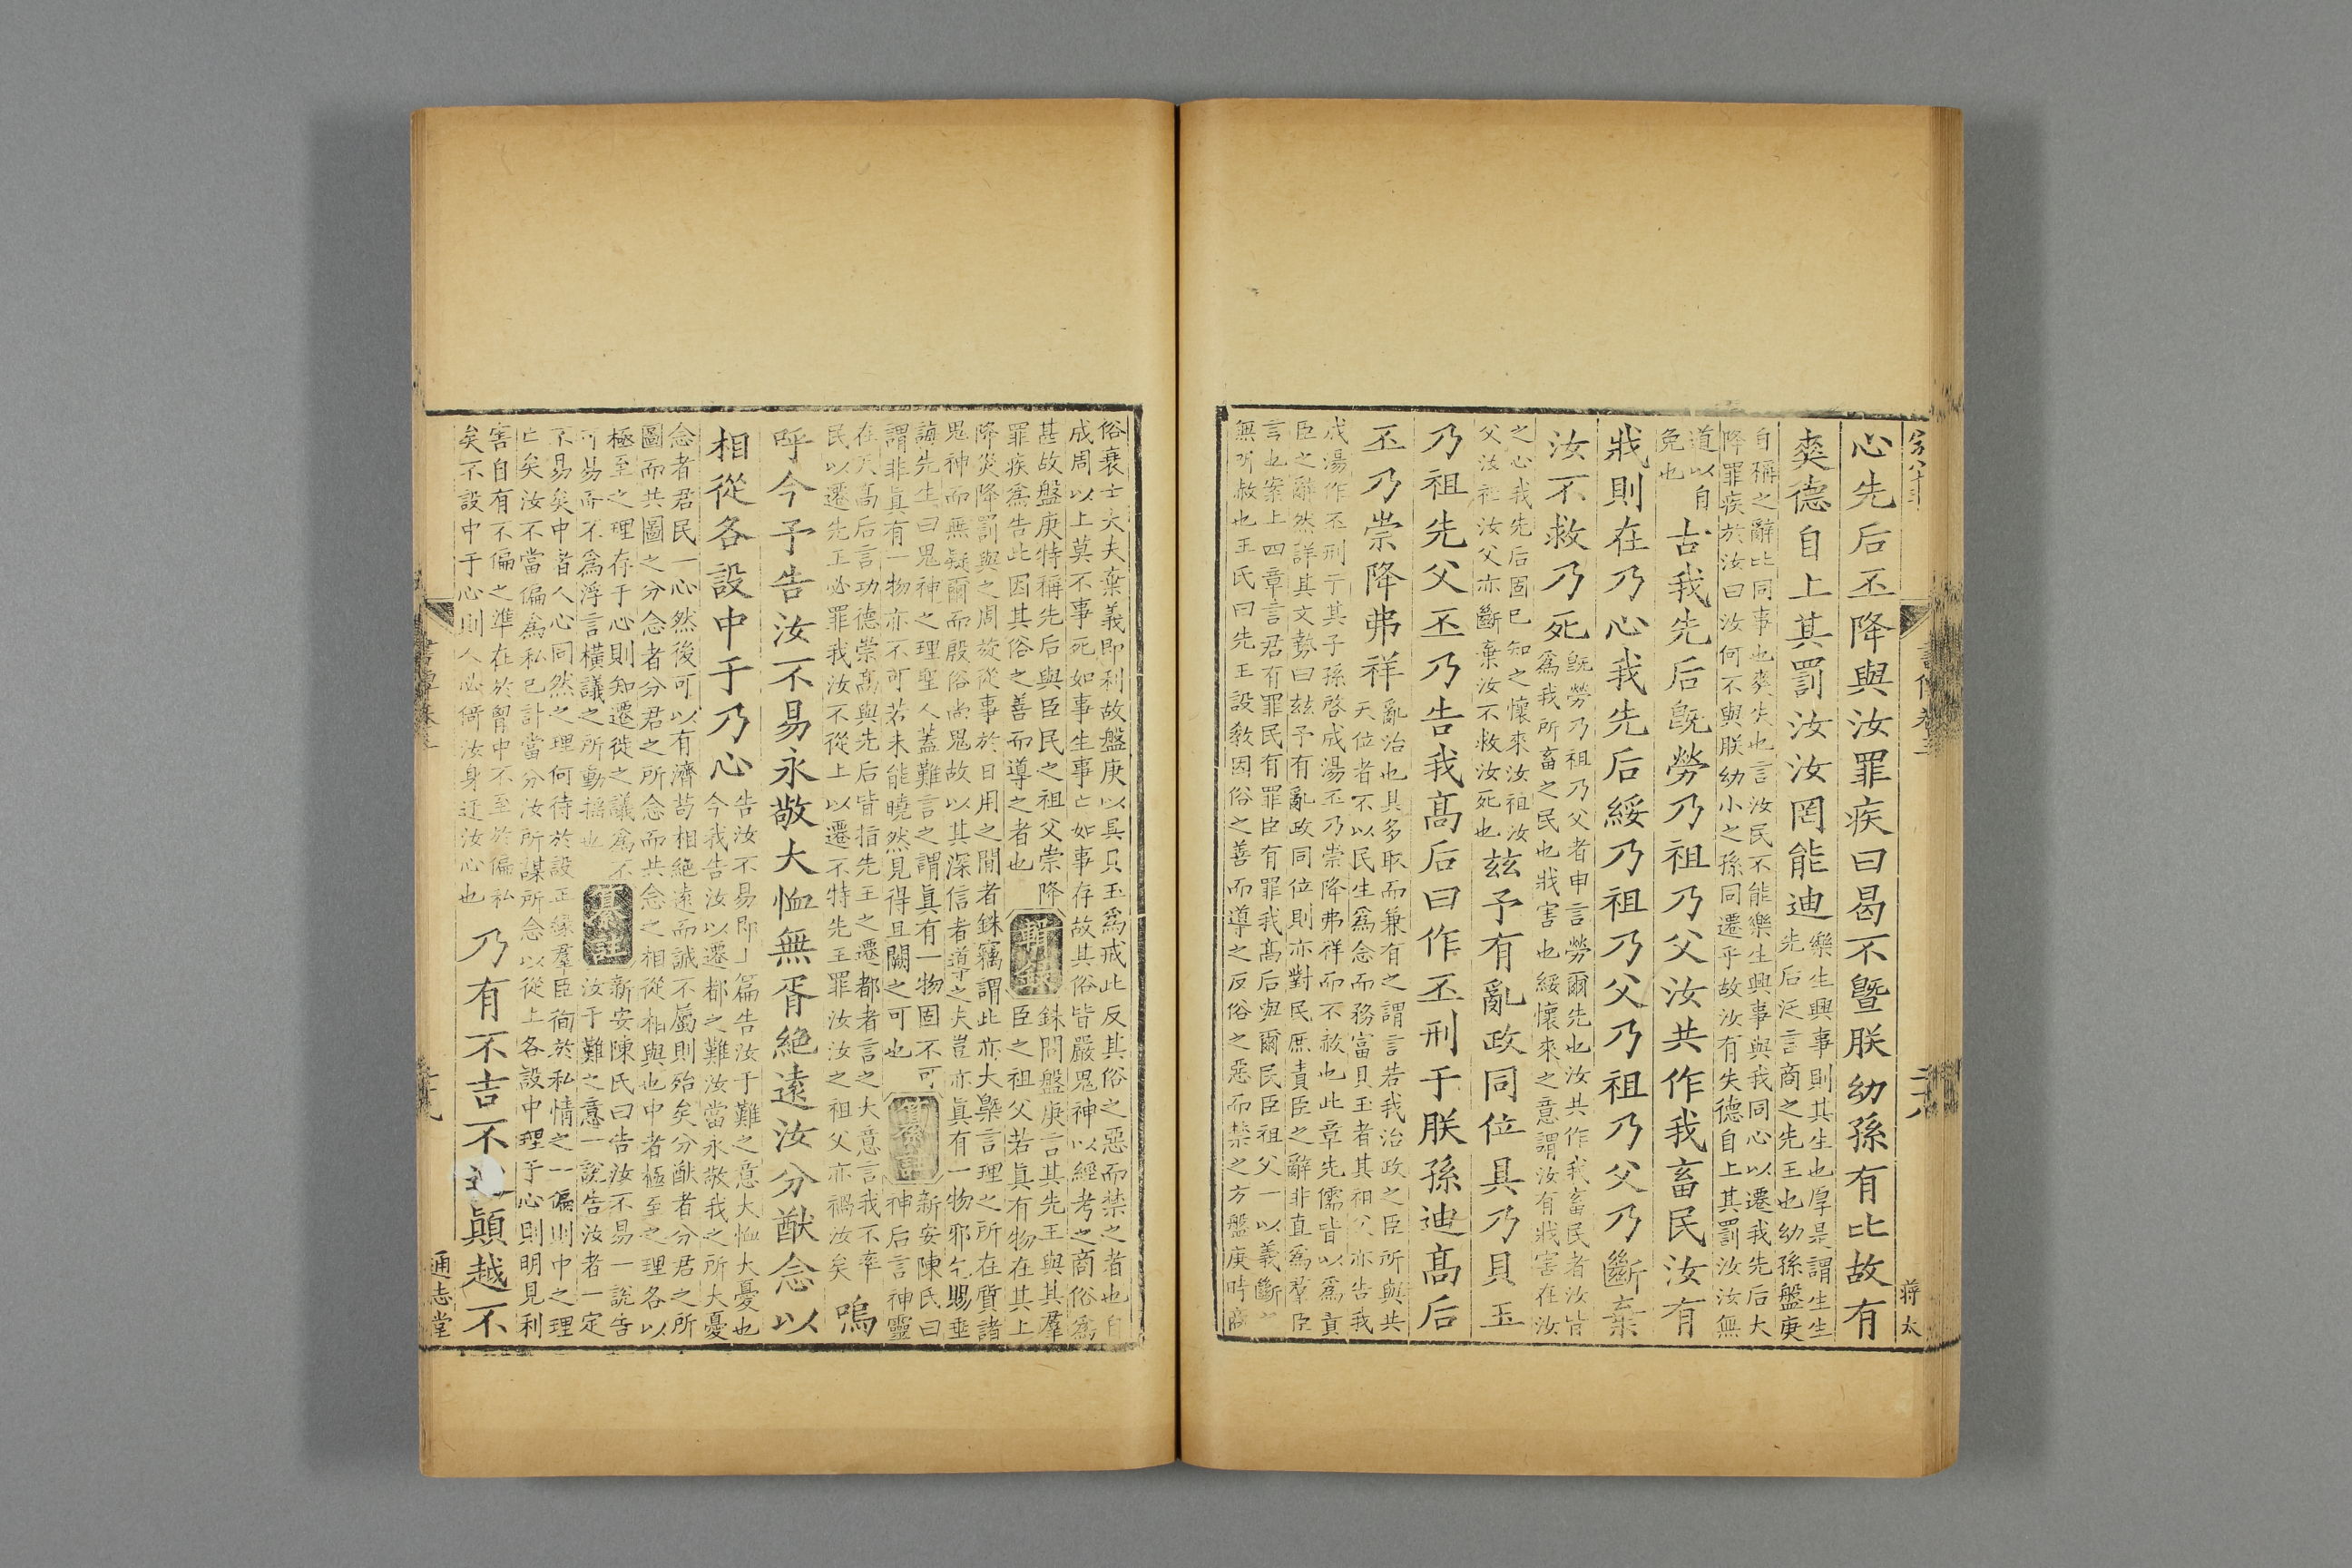 心先后丕降與汝罪疾曰曷不曁朕幼孫有比故有
爽德自上其罰汝汝罔能迪
樂生興事則其生也厚是謂生生
先后泛言商之先王也幼孫盤庚
自稱之辭比同事也爽失也言汝民不能樂生興事與我同心以遷我先后大
降罪疾於汝曰汝何不與朕幼小之孫同遷乎故汝有失德自上其罰汝汝無
道以自
免也
古我先后旣勞乃祖乃父汝共作我畜民汝有
戕則在乃心我先后綏乃祖乃父乃祖乃父乃斷棄
汝不救乃死
旣勞乃祖乃父者申言勞爾先也汝共作我畜民者汝皆
爲我所畜之民也戕害也綏懷來之意謂汝有戕害在汝
之心我先后固已知之懷來汝祖汝
父汝祖汝父亦斷棄汝不救汝死也
茲予有亂政同位具乃貝玉
乃祖先父丕乃告我高后曰作丕刑于朕孫迪高后
丕乃崇降弗祥
亂治也具多取而兼有之謂言若我治政之臣所與共
天位者不以民生爲念而務富貝玉者其祖父亦告我
成湯作丕刑于其子孫啓成湯丕乃崇降弗祥而不赦也此章先儒皆以爲責
臣之辭然詳其文勢曰茲予有亂政同位則亦對民庶責臣之辭非直爲羣臣
言也案上四章言君有罪民有罪臣有罪我高后與爾民臣祖父一以義斷之
無所赦也王氏曰先王設敎因俗之善而導之反俗之惡而禁之方盤庚時商
俗衰士大夫棄義卽利故盤庚以具貝玉爲戒此反其俗之惡而禁之者也自
成周以上莫不事死如事生事亡如事存故其俗皆嚴鬼神以經考之商俗爲
甚故盤庚特稱先后與臣民之祖父崇降
罪疾爲告此因其俗之善而導之者也
銖問盤庚言其先王與其羣
臣之祖父若眞有物在其上
降災降罰與之周旋從事於日用之閒者銖竊謂此亦大槩言理之所在質諸
鬼神而無疑爾而殷俗尚鬼故以其深信者導之夫豈亦眞有一物邪乞賜垂
誨先生曰鬼神之理聖人蓋難言之謂眞有一物固不可
謂非眞有一物亦不可若未能曉然見得且闕之可也
纂註
新安陳氏曰
神后言神靈
在天高后言功德崇高與先后皆指先王之遷都者言之大意言我不率
民以遷先王必罪我汝不從上以遷不特先王罪汝汝之祖父亦禍汝矣
嗚
呼今予告汝不易永敬大恤無胥絕遠汝分猷念以
相從各設中于乃心
告汝不易卽上篇告汝于難之意大恤大憂也
今我告汝以遷都之難汝當永敬我之所大憂
念者君民一心然後可以有濟苟相絕遠而誠不屬則殆矣分猷者分君之所
圖而共圖之分念者分君之所念而共念之相從相與也中者極至之理各以
極至之理存于心則知遷徙之議爲不
可易而不爲浮言橫議之所動搖也
纂註
新安陳氏曰告汝不易一說告
汝于難之意一說告汝者一定
不易矣中者人心同然之理何待於設正緣羣臣徇於私情之一偏則中之理
亡矣汝不當偏爲私己計當分汝所謀所念以從上各設中理于心則明見利
害自有不偏之準在於胷中不至於偏私
矣不設中于心則人必倚汝身迂汝心也
乃有不吉不迪顚越不
通志堂